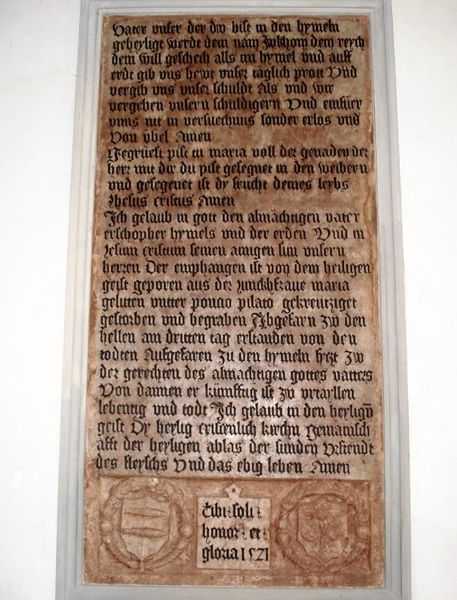 Vater unser der dw bist in den hymeln
geheyligt werdt dein nam Zwkhom dein reych
dein will geschech alls im hymel vnd auff
erdt gib vns hewt vnser täglich prott Vnd
vergib vns vnser schuldt Als vnd wir
vergeben vnsern schuldigern Vnd einfüer
vnns nit in versuechnus sonder erlos vnd
Von übel Amen
Gegrüest pist w maria voll der genaden der
herr mit dir du pist gesegnet in den weibern
vnd gesegenet ist dy frucht deines leybs
Jhesus cristus Amen
Ich gelaub in gott den almächtigen vater
erschopher hymels vnd der erden Vnd in
Jesum cristum seinen ainigen sun vnsern
herren Der emphangen ist von dem heiligen
geist geporen aus der junckhfraue maria
geliten vntter poncio pilato gekreutziget
gestorben vnd begraben Abgefarn Zw den
hellen am dritten tag erstanden von den
todten Aufgefaren Zu den hymeln sytzt Zw
der gerechten des almachtigen gottes vatters
Von dannen er künfftig ist zw vrtayllen
lebentig vnd todt Ich gelaub in den heylign
geist Dy heylig cristenlich kirchn Gemainsch
afft der heyligen ablas der sunden Vrstendt
des fleyschs Vnd das ebig leben Amen
Tibi soli
honor et
gloria 1521